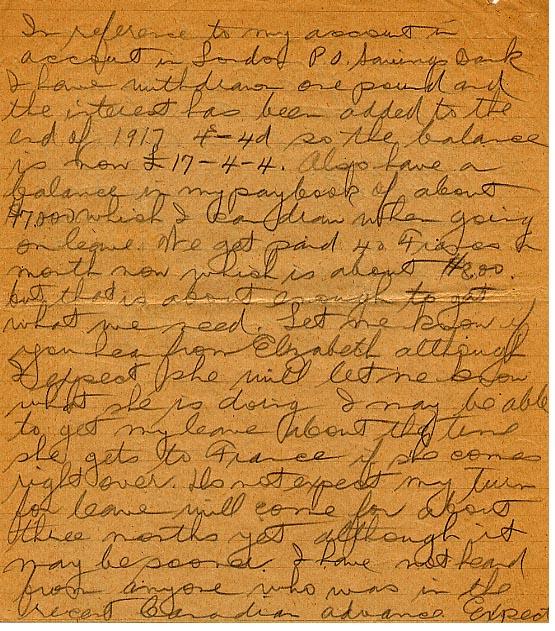 In reference to my account in
account in London P.O. Savings Bank
I have withdrawn one pound and
the interest has been added to the
end of 1917 4-4d so the balance
is now £17-4-4. Also have a
balance in my paybook of about
which I can draw when going
on leave. We get paid 40 Francs a
month now which is about $8.00.
but that is about enough to get
what we need. Let me know if
you hear from Elizabeth although
I expect she will let me know
what she is doing I may be able
to get my leave about the time
she gets to France if she comes
right over. Do not expect my turn
for leave will come for about
three months yet although it
may be sooner. I have not heard
from anyone who was in the
recent Canadian advance. Expect